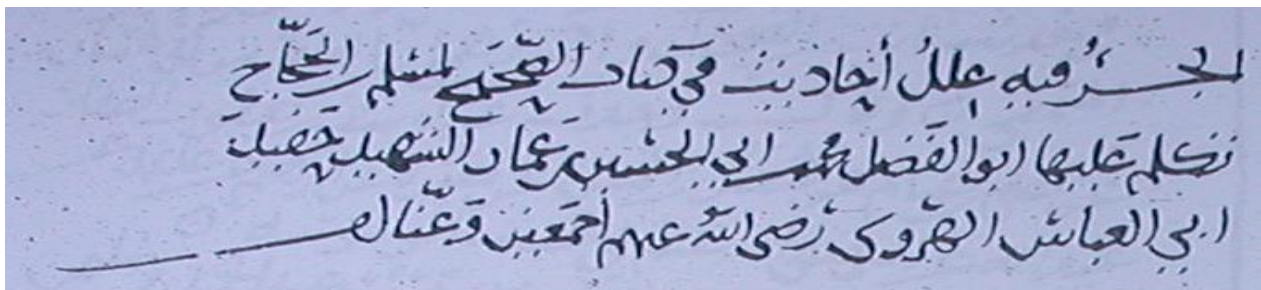 الجزء فيه علل أحاديث في كتاب الصحيح لمسلم بن الحجاج
تكلم عليها ابو الفضل محمد بن ابي الحسين بن عمار الشهيد حفيد
ابي العباس الهروي رضي الله عنهم أجمعين وعنا